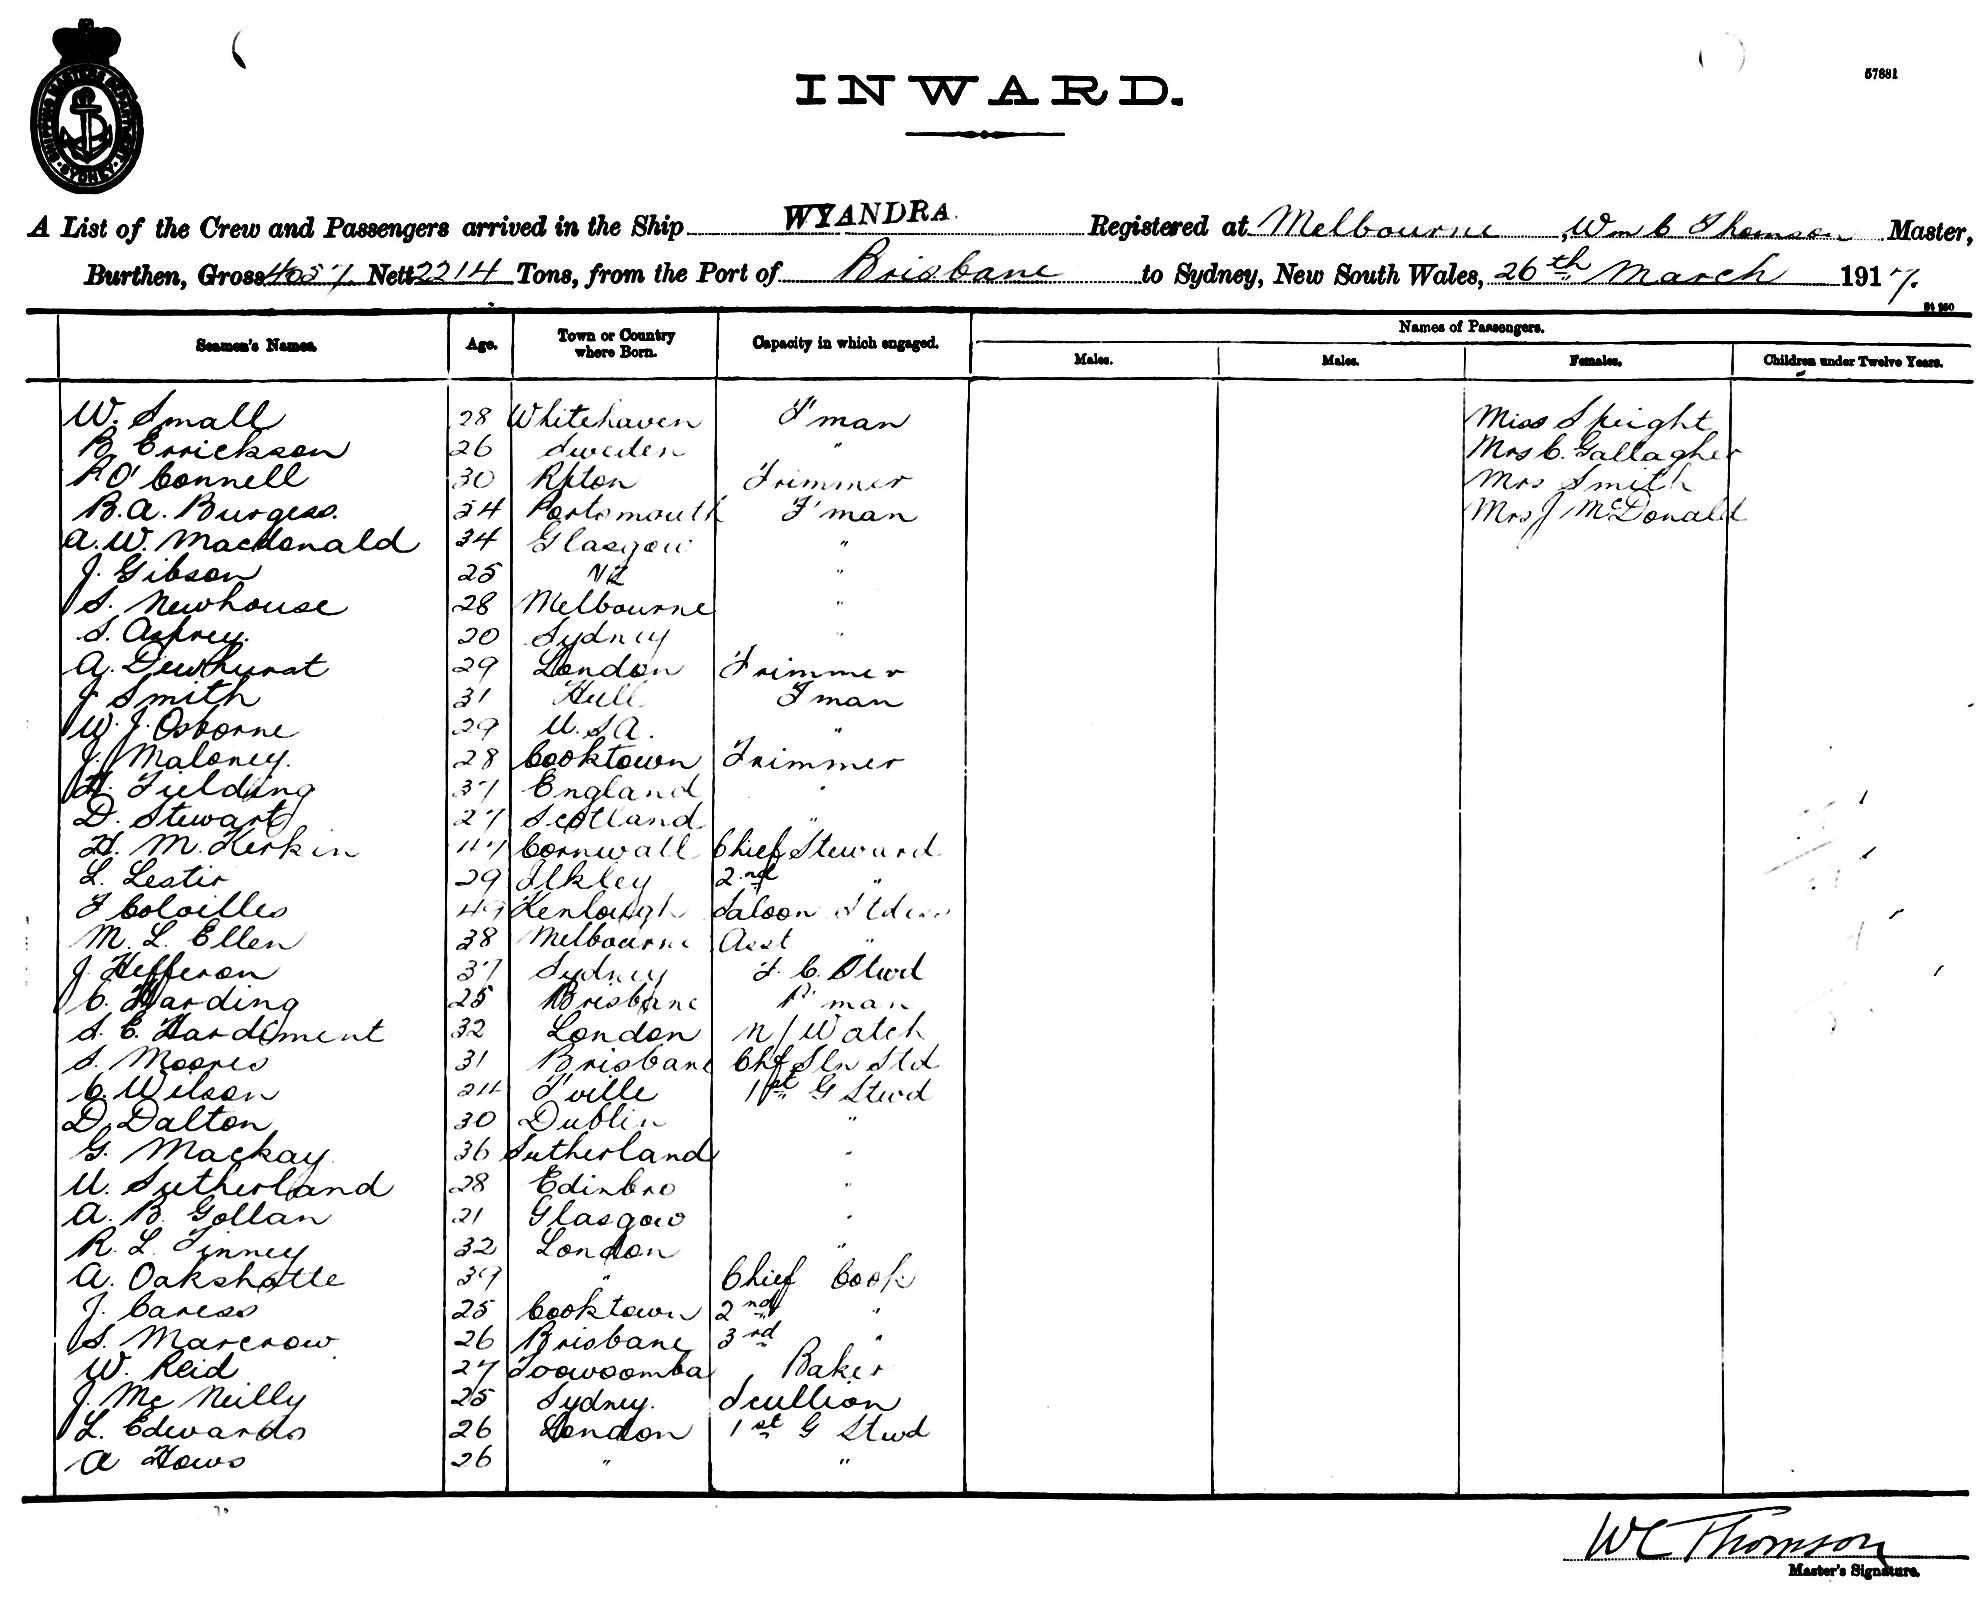 SHIPPING MASTERS DEPARTMENT SYDNEY
57881
INWARD.
A List of the Crew and Passengers arrived in the Ship WYANDRA. Registered at Melbourne, Wm C Thomson Master,
Burthen, Gross 4057 Nett 2214 Tons, from the Port of Brisbane to Sydney, New South Wales, 26th March 1917.
Seamen's Names. Age. Town or Country where Born. Capacity in which engaged. Names of Passengers.
Males. Males. Females. Children under Twelve Years.
W. Small 28 Whitehaven F'man Miss Speight
B. Errickson 26 Sweden " Mrs C. Gallagher
R O'Connell 30 Repton Trimmer Mrs Smith
B. A. Burgess. 24 Portsmouth F'man Mrs J McDonald
A. W. Macdonald 34 Glasgow "
J. Gibson 25 NZ "
S. Newhouse 28 Melbourne "
S. Asprey. 20 Sydney "
A. Dewhurst 29 London Trimmer
J Smith 31 Hull F'man
W. J. Osborne 29 U.S.A. "
J. Maloney. 28 Cooktown Trimmer
H. Fielding 37 England "
D. Stewart 27 Scotland "
H. M. Kerkin 47 Cornwall Chief Steward
L. Lester 29 Ilkley 2nd "
F Colvilles 49 Saloon
M. L. Ellen 38 Melbourne Asst "
J. Hefferon 37 Sydney F. C. Stwd
C. Harding 25 Brisbane P'man
S. E. Hardiment 32 London N/Watch
S. Moores 31 Brisbane Chf Sln Std
C. Wilson 24 T'ville 1st G Stwd
D. Dalton 30 Dublin "
G. Mackay 36 Sutherland "
U. Sutherland 28 Edinbro "
A. B. Gollan 21 Glasgow "
R. L. Finney 32 London "
A. Oakshotte 39 " Chief Cook
J. Caress 25 Cooktown 2nd "
S. Marcrow 26 Brisbane 3rd "
W. Reid 27 Toowoomba Baker
J. McNeilly 25 Sydney. Scullion
L. Edwards 26 London 1st G Stwd
A Hows 26 " "
WC Thomson
Master's Signature.